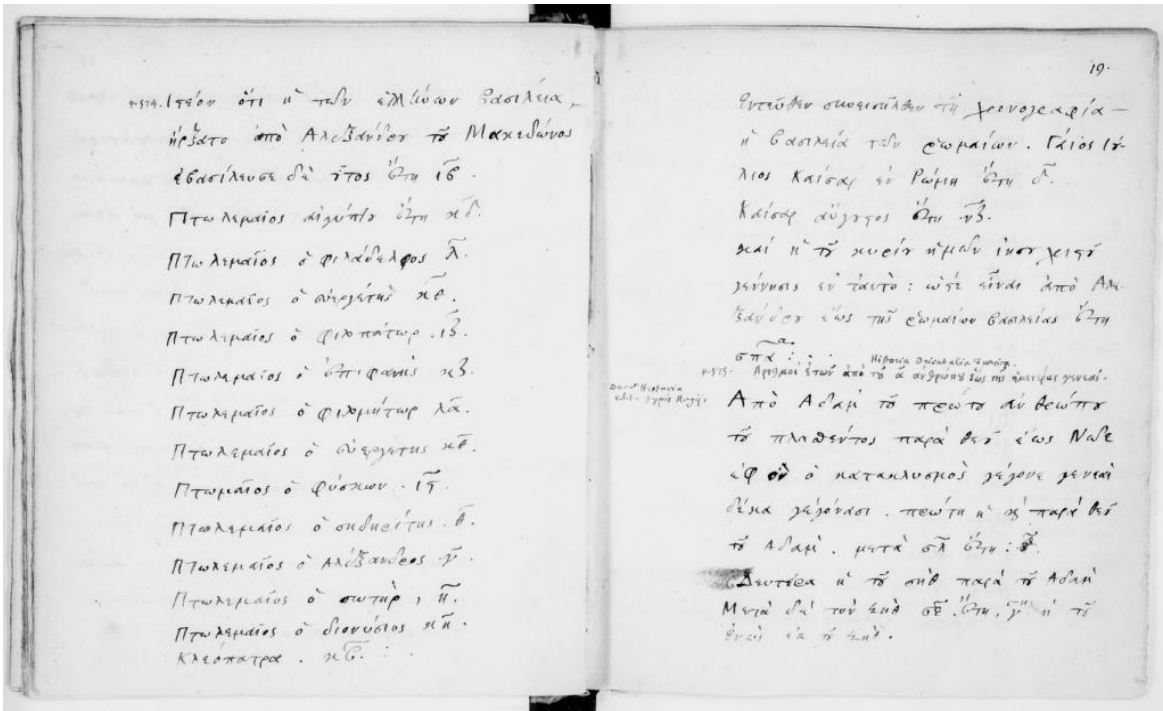 Ιστέον ὅτι ἡ τῶν ἑλλήνων βασιλεία,
ἤρξατο ἀπὸ Ἀλεξάνδρου τοῦ Μακεδῶνος
ἐβασίλευσε δὲ οὗτος ἔτη ιβ.
Πτωλεμαῖος αἰγύπτου ἔτη κδ.
Πτωλεμαῖος ὁ φιλάδελφος λ.
Πτωλεμαῖος ὁ εὐεργέτης κε.
Πτωλεμαῖος ὁ φιλοπάτωρ. ιζ.
Πτωλεμαῖος ὁ ἐπιφανὴς κζ.
Πτωλεμαῖος ὁ φιλομήτωρ λα.
Πτωλεμαῖος ὁ εὐεργέτης κθ.
Πτωμαῖος ὁ φύσκων. ις.
Πτωλεμαῖος ὁ σηδηρίτης. θ.
Πτωλεμαῖος ὁ Ἀλέξανδρος γ.
Πτωλεμαῖος ὁ σωτὴρ, η.
Πτωλεμαῖος ὁ διονύσιος κη.
Κλεόπατρα. κβ.
19.
Ἐντεῦθεν συνεισῆλθεν τῇ χρονογραφία
ἡ βασιλεία τῶν ῥωμαίων. Γάϊος Ιού-
λιος Καίσαρ ἐν Ρώμη ἔτη δ.
Καίσαρ αὔγουστος ἔτη νζ.
καὶ ἡ τοῦ κυρίου ἡμῶν ἰησου χριστοῦ
γέννησις ἐν ταύτο: ὥστε εἶναι ἀπὸ Ἀλε
ξάνδρου ἕως τῆς ῥωμαίων βασιλείας ἔτη
σπα:
Ἀριθμοὶ ἐτῶν ἀπὸ τοῦ α ἀνθρώπου ἕως τῆς ἡμετέρας γενεάς.
Ἀπὸ Ἀδὰμ τοῦ πρώτου ἀνθρώπου
τοῦ πλασθέντος παρὰ θεοῦ ἕως Νῶε
ἐφ οὗ ὁ κατακλυσμὸς γέγονε γενεαὶ
δέκα γεγόνασι. πρώτη ἡ παρὰ θεοῦ
τοῦ Ἀδάμ. μετὰ σλ ἔτη:
Δευτέρα ἡ τοῦ σὴθ παρὰ τοῦ Ἀδὰμ
Μετὰ δὲ τὸν σὴθ σε. ἔτη. γ ἡ τοῦ
ἐνὼς ἐκ τοῦ σήθ.